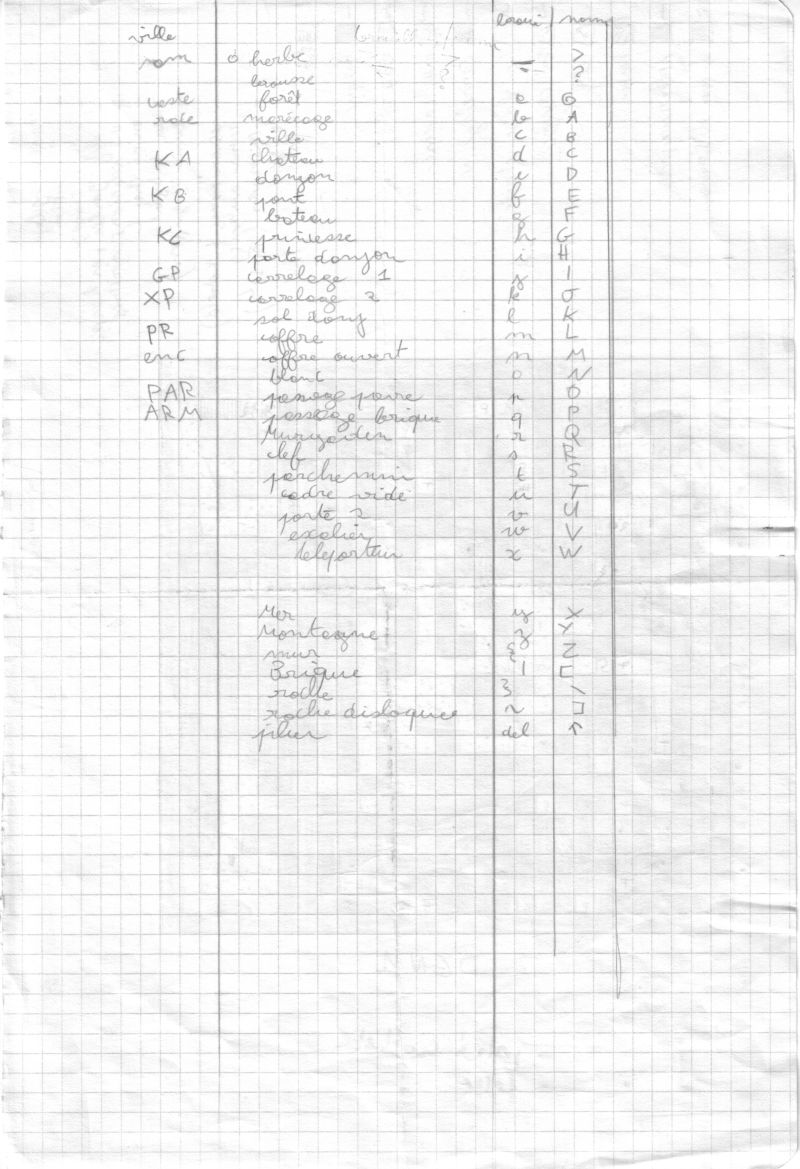 nom
ville
nom o herbe - >
brousse ?
veste forêt a @
marécage b A
ville c B
KA chateau d C
donjon e D
KB pont f E
bateau g F
KC princesse h G
porte donjon i H
GP carrelage 1 j I
XP carrelage 2 k J
sol donj l K
PR coffre m L
enc coffre ouvert n M
blanc o N
PAR passage pavre p O
ARM passage brique q P
r Q
clef s R
parchemin t S
cadre vide u T
porte 2 v U
escalier w V
teleporteur x W
Mer y X
Montagne z Y
mur { Z
Brique | [
roche } \
roche disloquee ~ ]
pilier del ↑